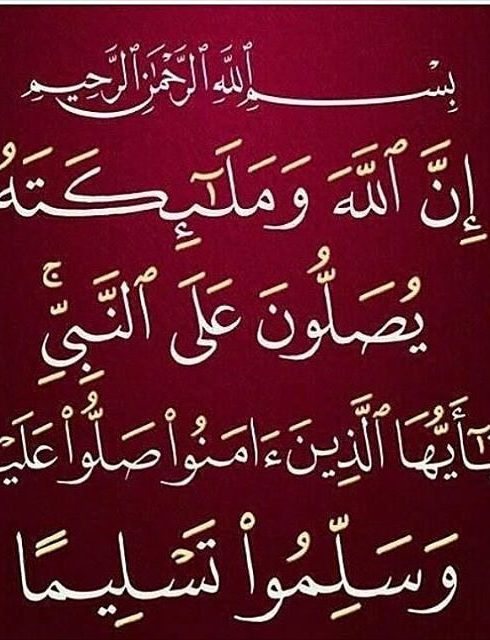 بِسْمِ ٱللَّهِ ٱلرَّحْمَٰنِ ٱلرَّحِيمِ
إِنَّ ٱللَّهَ وَمَلَٰٓئِكَتَهُ
يُصَلُّونَ عَلَى ٱلنَّبِيِّۚ
يَٰٓأَيُّهَا ٱلَّذِينَ ءَامَنُوا۟ صَلُّوا۟ عَلَيْ
وَسَلِّمُوا۟ تَسْلِيمًا